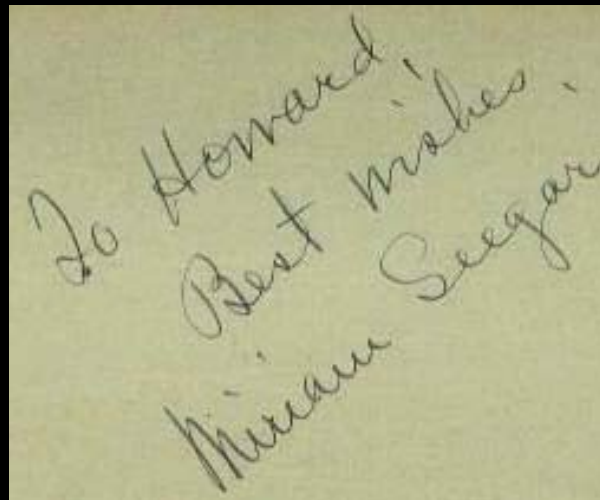 To Howard,
Best Wishes.
Miriam Seegar